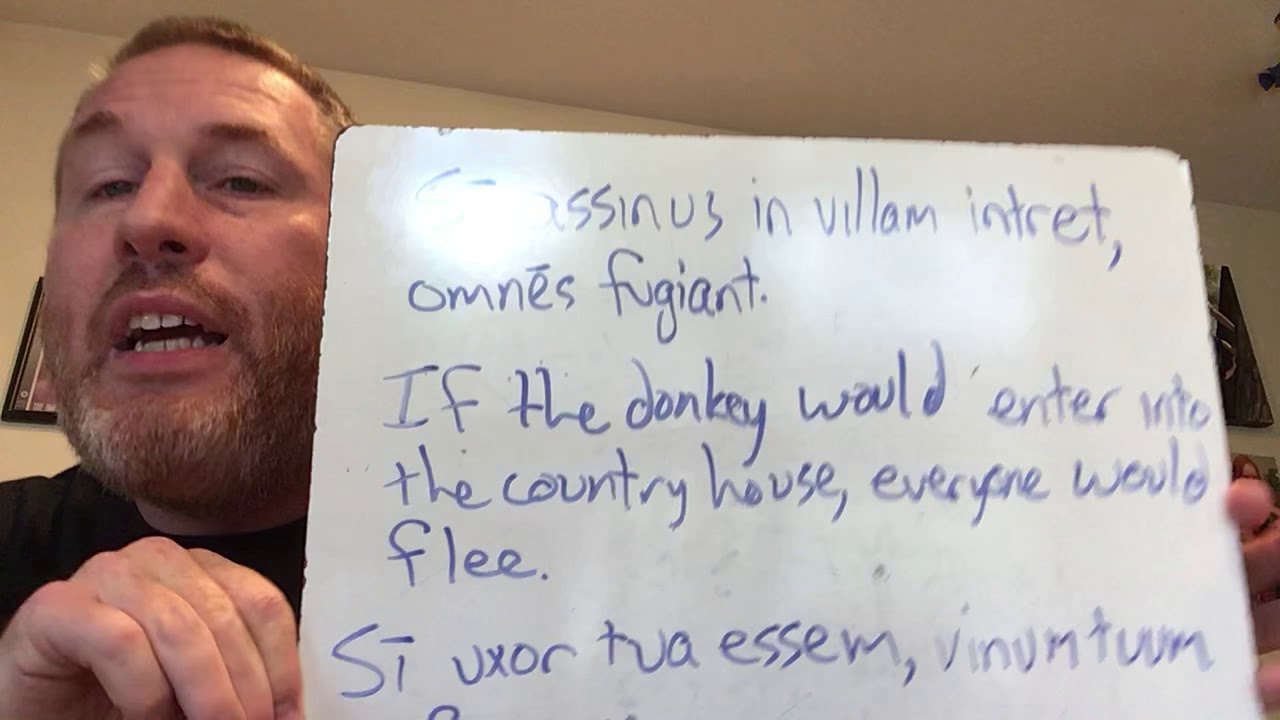 Sī assinus in villam intret,
omnēs fugiant.
If the donkey would enter into
the country house, everyone would
flee.
Sī uxor tua essem, vinum tuum